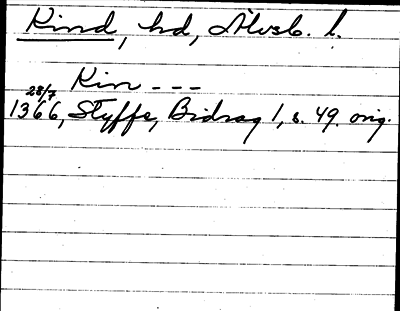 Kind, hd, Älvsb. l.
Kin - - -
28/7
1366, Styffe, Bidrag 1, s. 49. orig.